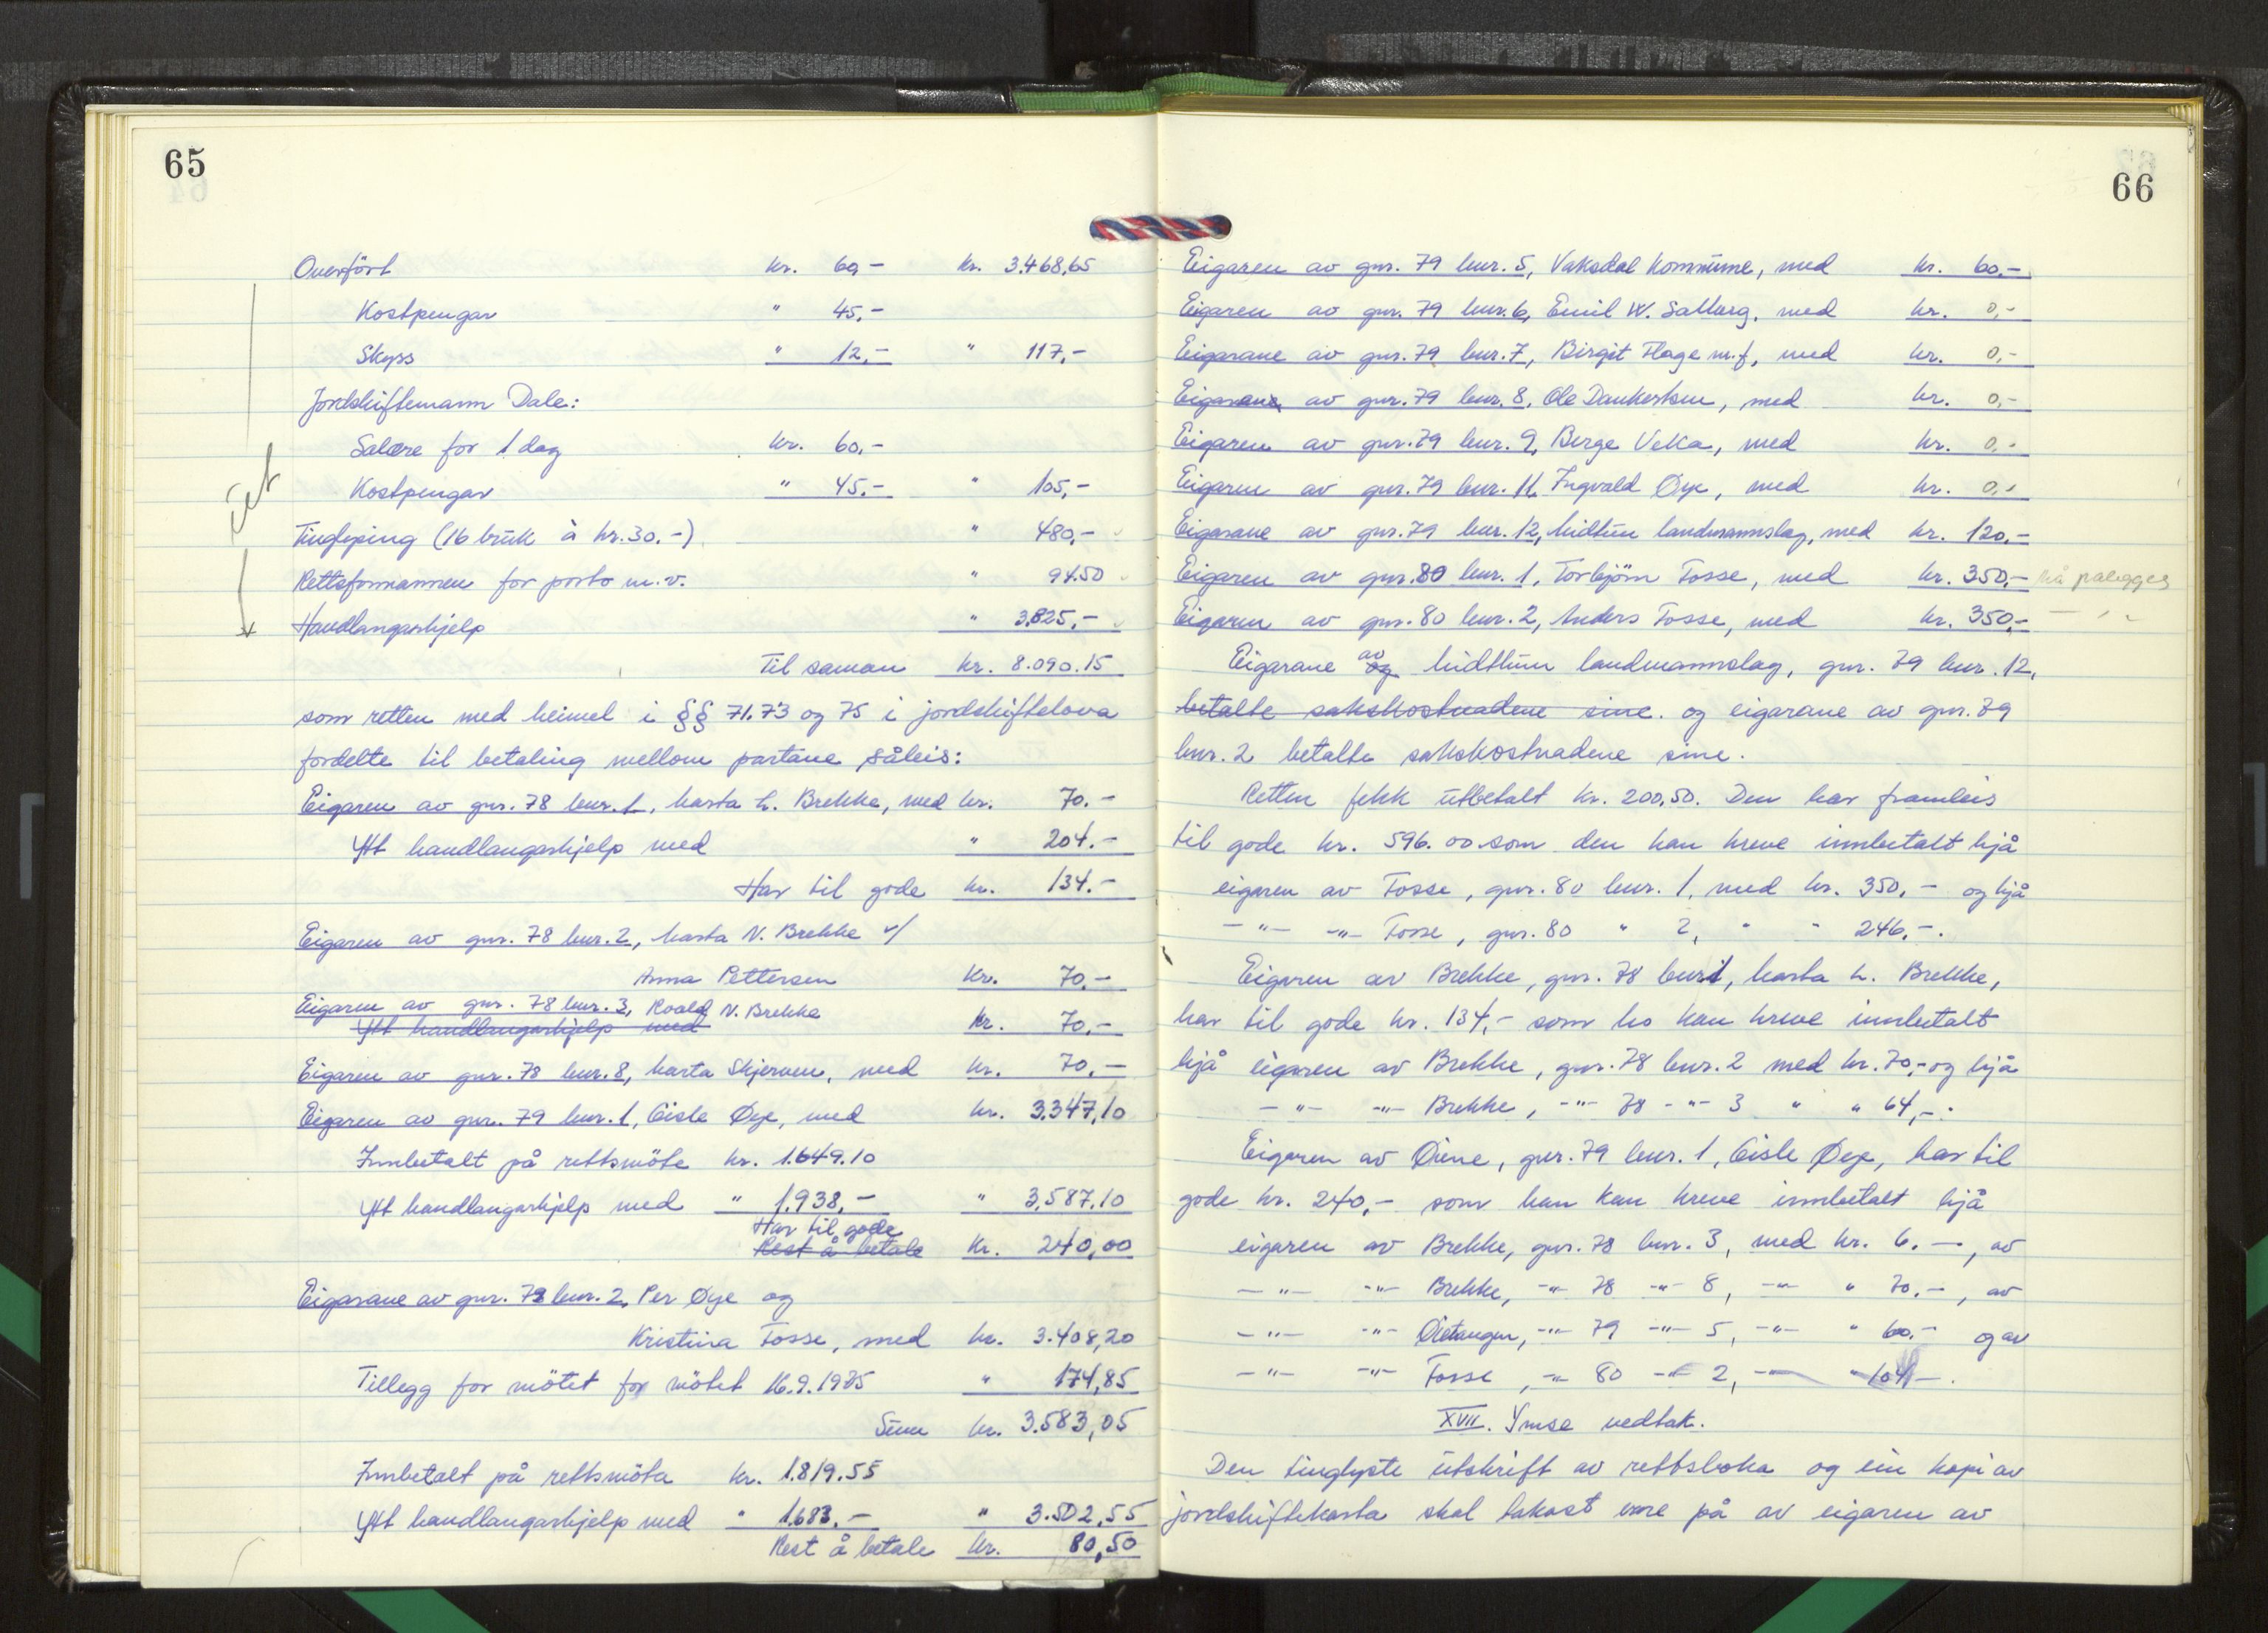 65
Overført kr. 60,- kr. 3.468,65
Kostpengar " 45,-
Skyss " 12,- " 117,-
Jordskiftemann Dale:
Salære for 1 dag kr. 60,-
Kostpengar " 45,- " 105,-
Tinglysing (16 bruk à kr. 30.-) " 480,-
Rettsformannen for porto m.v. " 94.50
Handlangarhjelp " 3.825,-
Til saman kr. 8.090.15
som retten med heimel i §§ 71.73 og 75 i jordskiftelova
fordelte til betaling mellom partane såleis:
Eigaren av gnr. 78 bnr. 1, Marta L. Brekke, med kr. 70.-
Ytt handlangarhjelp med " 204.-
Har til gode kr. 134.-
Eigaren av gnr. 78 bnr. 2, Marta N. Brekke v/
Anna Pettersen kr. 70,-
Eigaren av gnr. 78 bnr. 3, Roald N. Brekke
Ytt handlangarhjelp med kr. 70,-
Eigaren av gnr. 78 bnr. 8, Marta Skjerven, med kr. 70,-
Eigaren av gnr. 79 bnr. 1, Gisle Øye, med kr. 3.347,10
Innbetalt på rettsmøte kr. 1.649.10
Ytt handlangarhjelp med " 1.938,- " 3.587.10
Har til gode
Rest å betale kr. 240,00
Eigarane av gnr. 79 bnr. 2, Per Øye og
Kristina Fosse, med kr. 3.408,20
Tillegg for møtet for møtet 16.9.1985 " 174,85
Sum kr. 3.583,05
Innbetalt på rettsmøta kr. 1.819.55
Ytt handlangarhjelp med " 1.683.- " 3.502,55
Rest å betale kr. 80,50
66
Eigaren av gnr. 79 bnr. 5, Vaksdal kommune, med kr. 60.-
Eigaren av gnr. 79 bnr. 6, Emil W. Salberg, med kr. 0,-
Eigarane av gnr. 79 bnr. 7, Birgit Flage m.f, med kr. 0,-
av gnr. 79 bnr. 8, Ole Dankertsen, med kr. 0,-
Eigaren av gnr. 79 bnr. 9, Berge Veka, med kr. 0,-
Eigaren av gnr. 79 bnr. 11, Ingvald Øye, med kr. 0,-
Eigarane av gnr. 79 bnr. 12, Midttun landmannslag, med kr. 120,-
Eigaren av gnr. 80 bnr. 1, Torbjørn Fosse, med kr. 350,- må pålegges
Eigaren av gnr. 80 bnr. 2, Anders Fosse, med kr. 350,- - " -
Eigarane og av Midttun landmannslag, gnr. 79 bnr. 12,
betalte sakskostnadene sine. og eigarane av gnr. 79
bnr. 2 betalte sakskostnadene sine.
Retten fekk utbetalt kr. 200,50. Den har framleis
til gode kr. 596.00 som den kan kreve innbetalt hjå
eigaren av Fosse, gnr. 80 bnr. 1, med kr. 350,- og hjå
-"- -"- Fosse, gnr. 80 " 2, " " 246,-.
Eigaren av Brekke, gnr. 78 bnr 1, Marta L. Brekke,
har til gode kr. 134,- som ho kan kreve innbetalt
hjå eigaren av Brekke, gnr. 78 bnr. 2 med kr. 70,- og hjå
-"- -"- Brekke, -"- 78 -"- 3 " " 64,-.
Eigaren av Øiene, gnr. 79 bnr. 1, Gisle Øye, har til
gode kr. 240,- som han kan kreve innbetalt hjå
eigaren av Brekke, gnr. 78 bnr. 3, med kr. 6.-, av
-"- -"- Brekke, -"- 78 -"- 8, -"- " 70.-, av
-"- -"- Øietangen, -"- 79 -"- 5, -"- " 60.- og av
-"- -"- Fosse, -"- 80 -"- 2, -"- " 104-.
XVII. Ymse vedtak.
Den tinglyste utskrift av rettsboka og ein kopi av
jordskiftekarta skal takast vare på av eigaren av